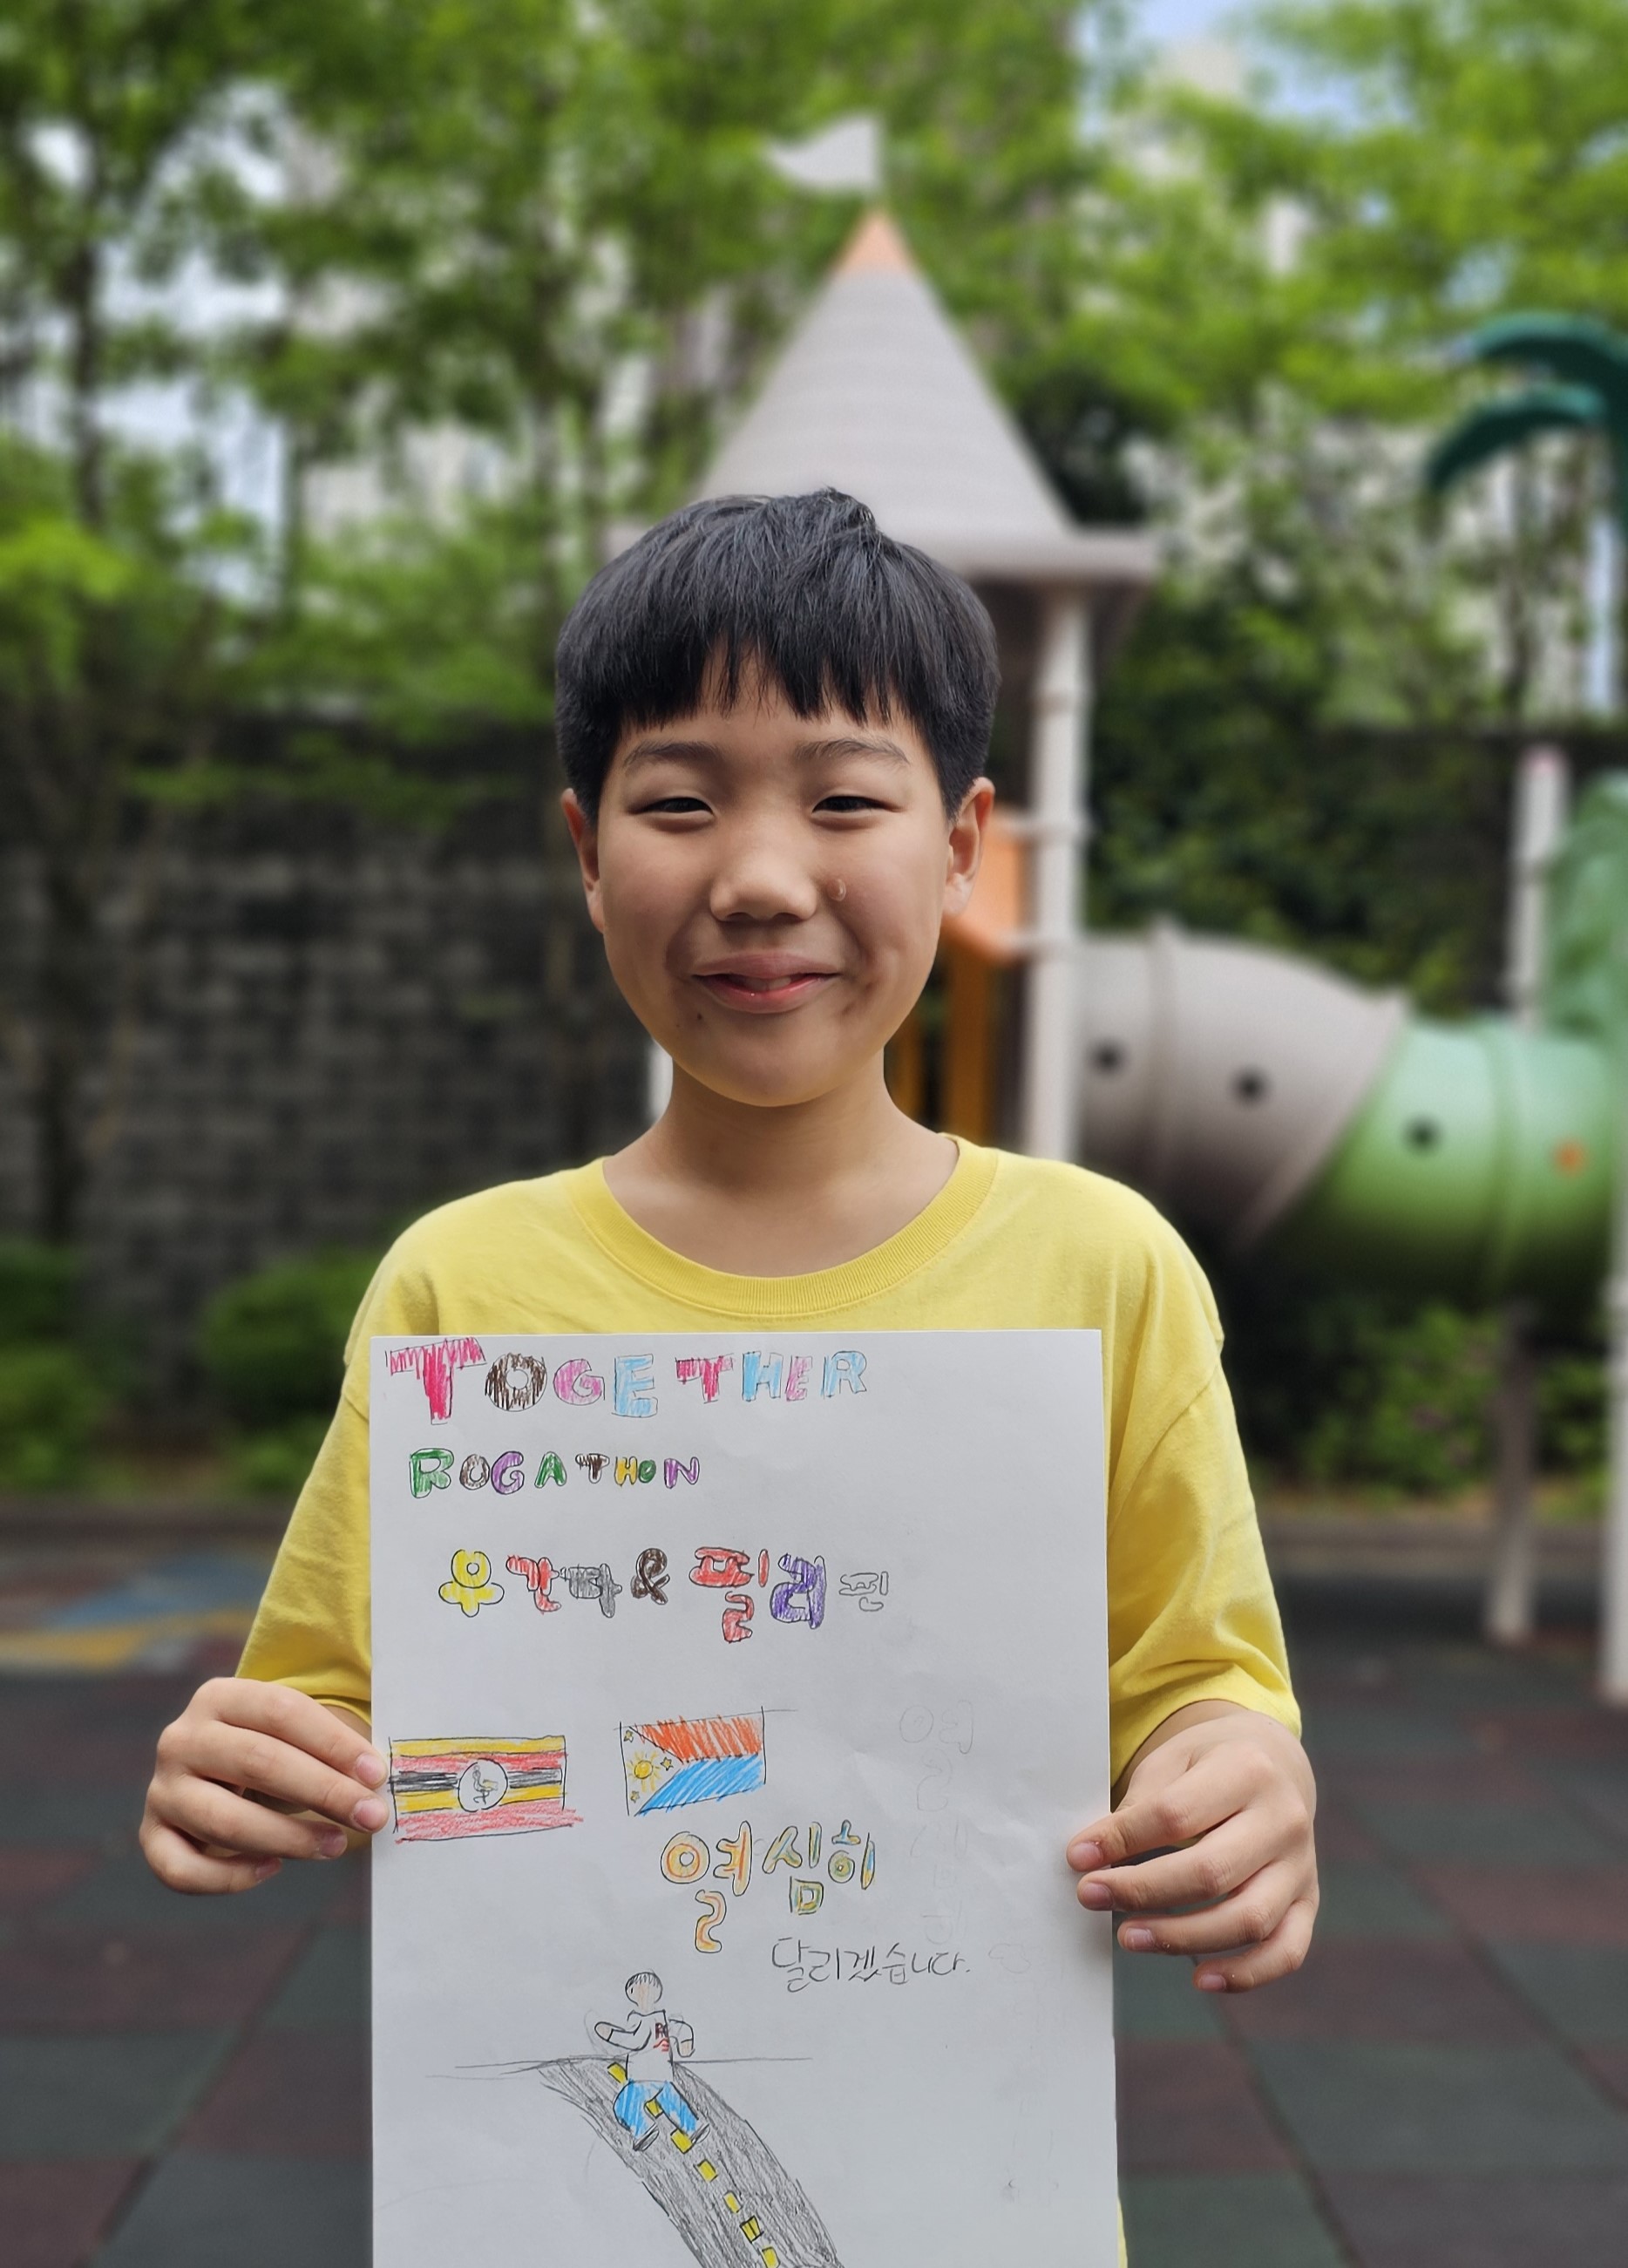 TOGETHER
ROGATHON
우간다 & 필리핀
열심히
달리겠습니다.